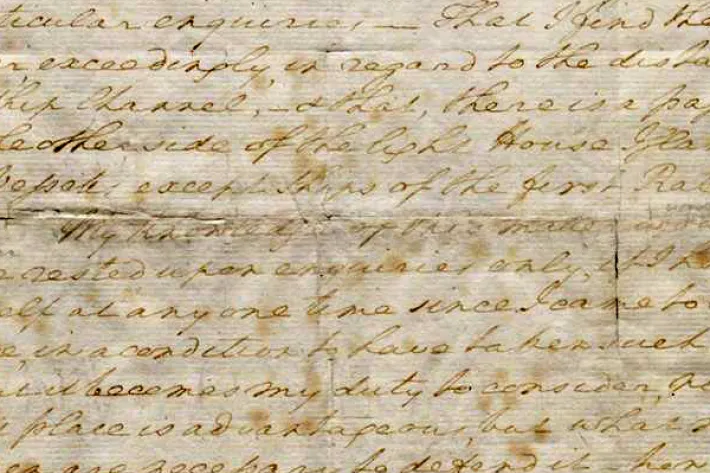 ticular enquiries — That I find the
exceedingly, in regard to the dista
Ship Channel, — & that, there is a pa
other side of the light House Isla
Vessels, except Ships of the first Rat
My knowledge of this matter
rested upon enquiries only, I ha
self at any one time since I came to
in a condition to have taken such
it becomes my duty to consider,
place is advantageous, but what
are necessary to defend it